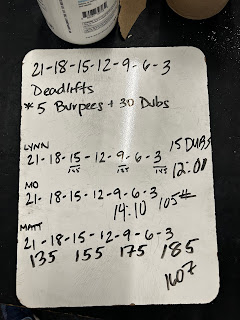 21-18-15-12-9-6-3
Deadlifts
* 5 Burpees + 30 Dubs
LYNN 15 DUBS
21-18-15-12-9-6-3 12:01
MO
21-18-15-12-9-6-3
14:10 105#
MATT
21-18-15-12-9-6-3
135 155 175 185
1607